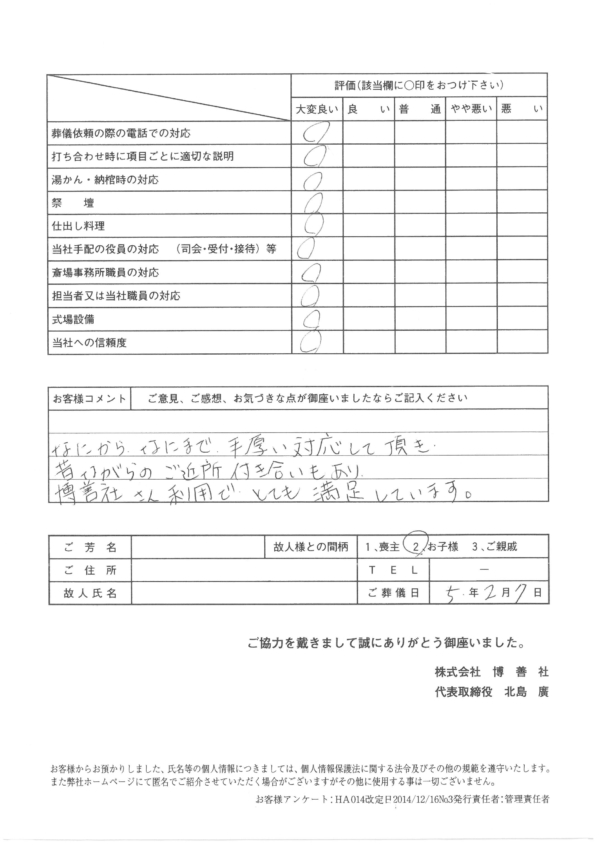 評価(該当欄に〇印をおつけ下さい)
大変良い 良 い 普 通 やや悪い 悪 い
葬儀依頼の際の電話での対応
打ち合わせ時に項目ごとに適切な説明
湯かん・納棺時の対応
祭 壇
仕出し料理
当社手配の役員の対応 (司会・受付・接待)等
斎場事務所職員の対応
担当者又は当社職員の対応
式場設備
当社への信頼度
お客様コメント ご意見、ご感想、お気づきな点が御座いましたならご記入ください
なにから なにまで 手厚い対応して頂き
昔ながらの ご近所付き合いもあり
博善社さん利用で とても満足しています。
ご芳名 故人様との間柄 1、喪主 2、お子様 3、ご親戚
ご住所 TEL ー
故人氏名 ご葬儀日 5年2月7日
ご協力を戴きまして誠にありがとう御座いました。
株式会社 博善社
代表取締役 北島 廣
お客様からお預かりしました、氏名等の個人情報につきましては、個人情報保護法に関する法令及びその他の規範を遵守いたします。
また弊社ホームページにて匿名でご紹介させていただく場合がございますがその他に使用する事は一切ございません。
お客様アンケート:HA014改定日2014/12/16№3発行責任者:管理責任者